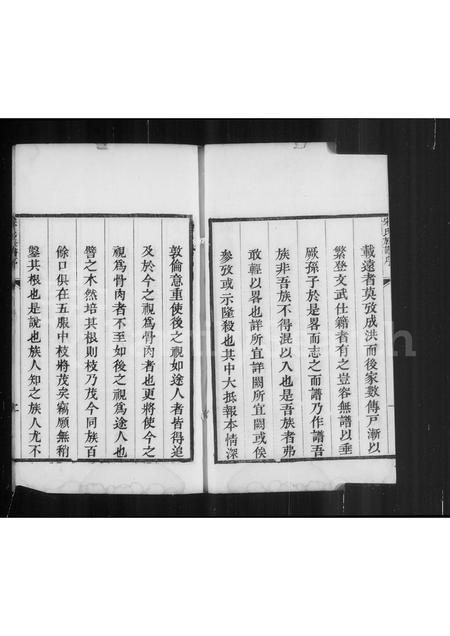 載遠者莫攷成洪而後家數傳戸漸以
繁登文武仕籍者有之豈容無譜以垂
厥孫子於是畧而志之而譜乃作譜吾
族非吾族不得混以入也是吾族者弗
敢輕以畧也詳所宜詳闕所宜闕或俟
參攷或示隆殺也其中大抵報本情深
敦倫意重使後之視如途人者皆得追
及於今之視爲骨肉者也更將使今之
視爲骨肉者不至如後之視爲途人也
譬之木然培其根則枝乃茂今同族百
餘口俱在五服中枝將茂矣竊願無稍
鑿其根也是說也族人知之族人尤不